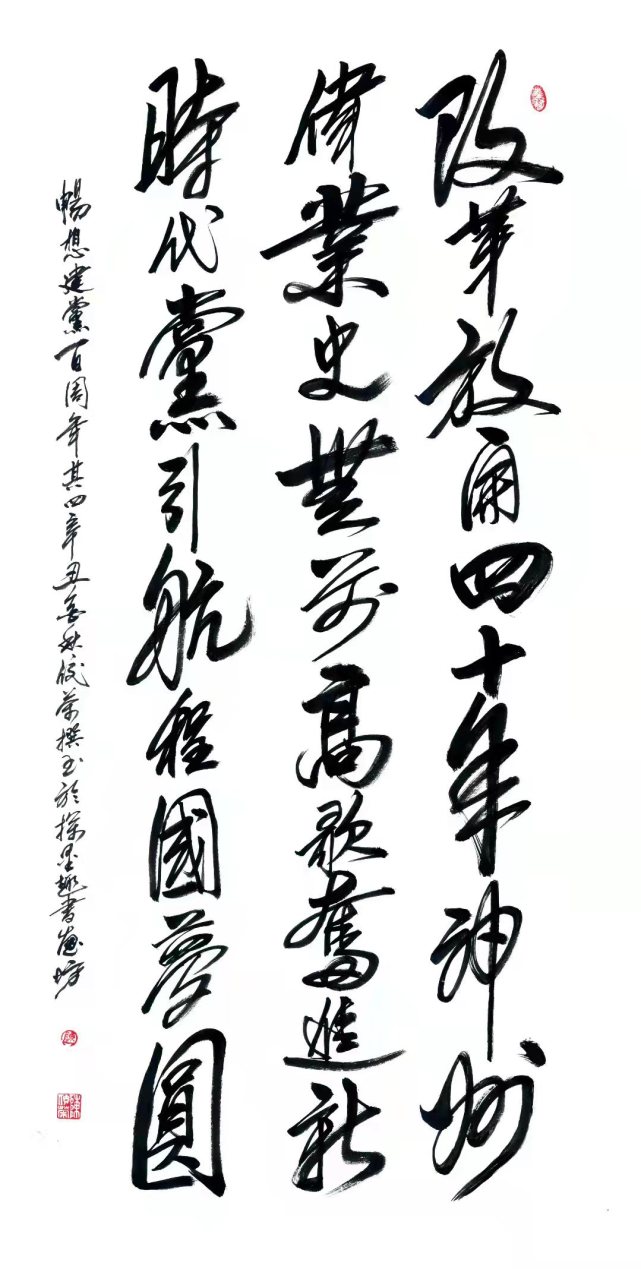 改革放開四十年神州
偉業史無前高歌奮進新
時代黨引航程國夢圓
暢想建黨百周年其四辛丑秋榮撰书於探墨趣書畫坊